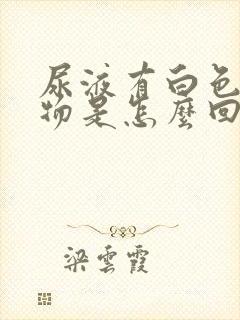 尿液有白色
物是怎麼回
梁雲霞